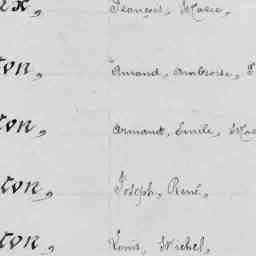 ux, François, Marie,
ton, Amand, Ambroise,
ton, Armand, Emile,
ton, Joseph, René,
ton, Louis, Michel,